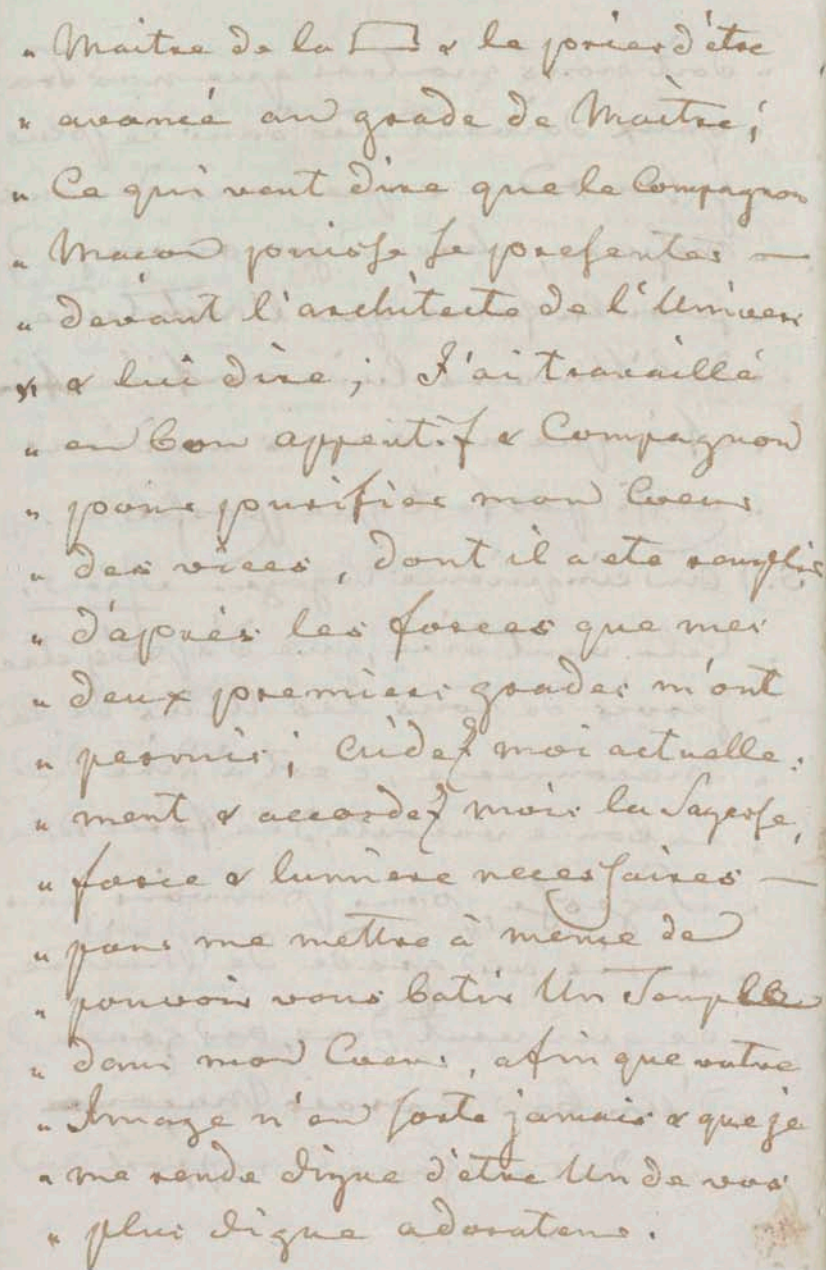 " Maitre de la ▭ & le prier d'être
" avancé au grade de Maitre;
" Ce qui veut dire que le Compagnon
" Macon puisse se presenter —
" devant l'architecte de l'Univers
" & lui dire; J'ai travaillé
" en bon apprentif & Compagnon
" pour purifier mon Coeur
" des vices, dont il a ete remplis
" d'après les forces que mes
" deux premiers grades m'ont
" permis; aidez moi actuelle:
" ment & accordez mois la Sagesse,
" force & lumiere necessaires —
" pour me mettre à meme de
" pouvoir vous batir Un Temple
" dans mon Coeur, afin que votre
" Image n'en sorte jamais & que je
" me rende digne d'etre Un de vos
" plus digne adorateurs.